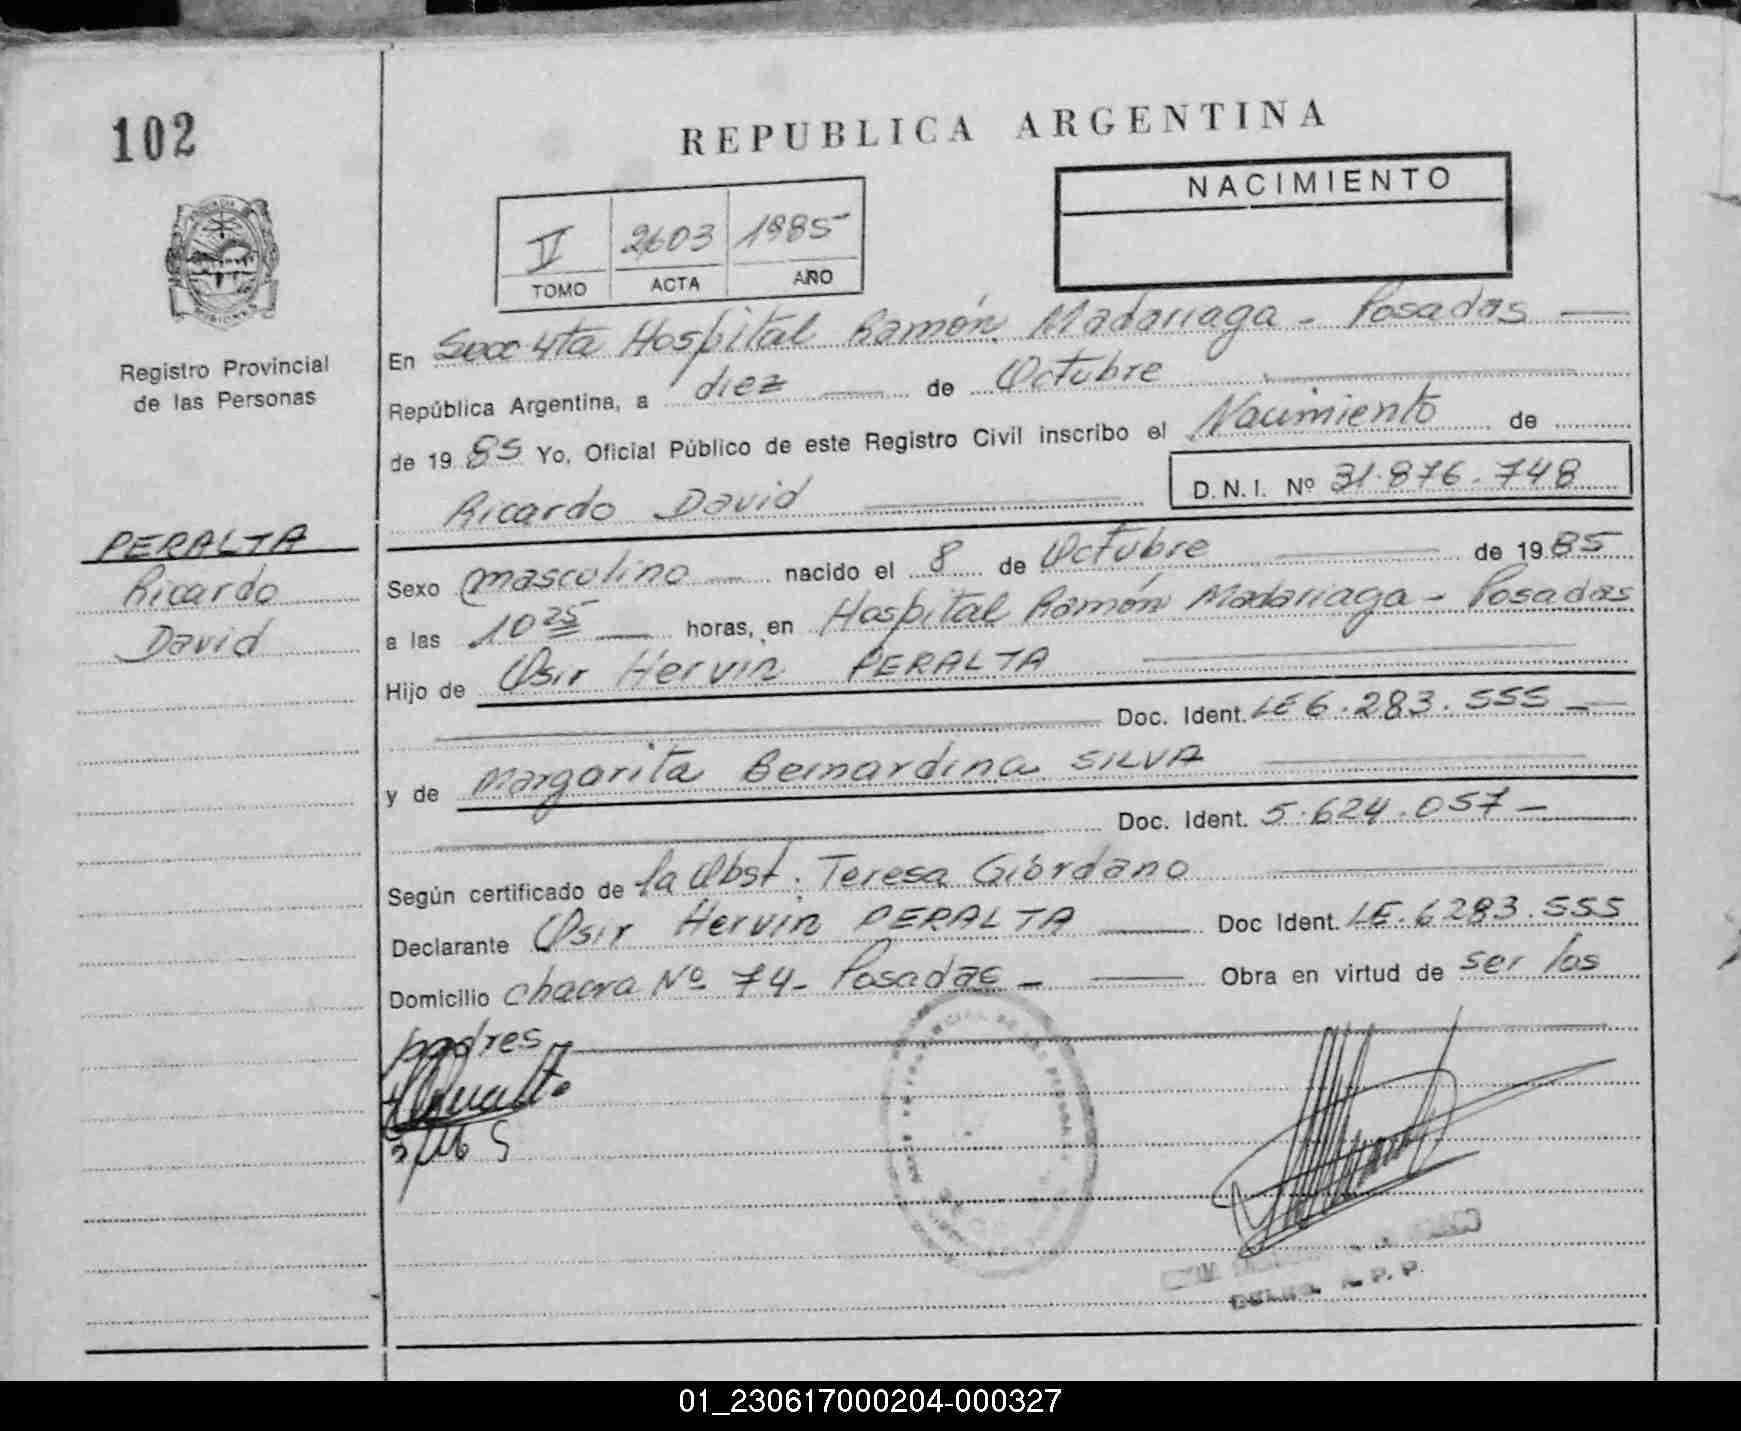 102
REPUBLICA ARGENTINA
NACIMIENTO
V 2603 1985
TOMO ACTA AÑO
Registro Provincial
de las Personas
En Secc 4ta Hospital Ramón Madariaga - Posadas
República Argentina, a diez de Octubre
de 19 85 Yo, Oficial Público de este Registro Civil inscribo el Nacimiento de
Ricardo David D.N.I. Nº 31.876.748
PERALTA
Ricardo
David
Sexo masculino nacido el 8 de Octubre de 19 85
a las 10 25 horas, en Hospital Ramón Madariaga - Posadas
Hijo de Osir Hervin PERALTA
Doc. Ident. LE 6.283.555
y de Margarita Bernardina SILVA
Doc. Ident. 5.624.057 -
Según certificado de la Obst. Teresa Giordano
Declarante Osir Hervin PERALTA Doc Ident. LE.6283.555
Domicilio chacra Nº 74 - Posadas - Obra en virtud de ser los
padres
01_230617000204-000327